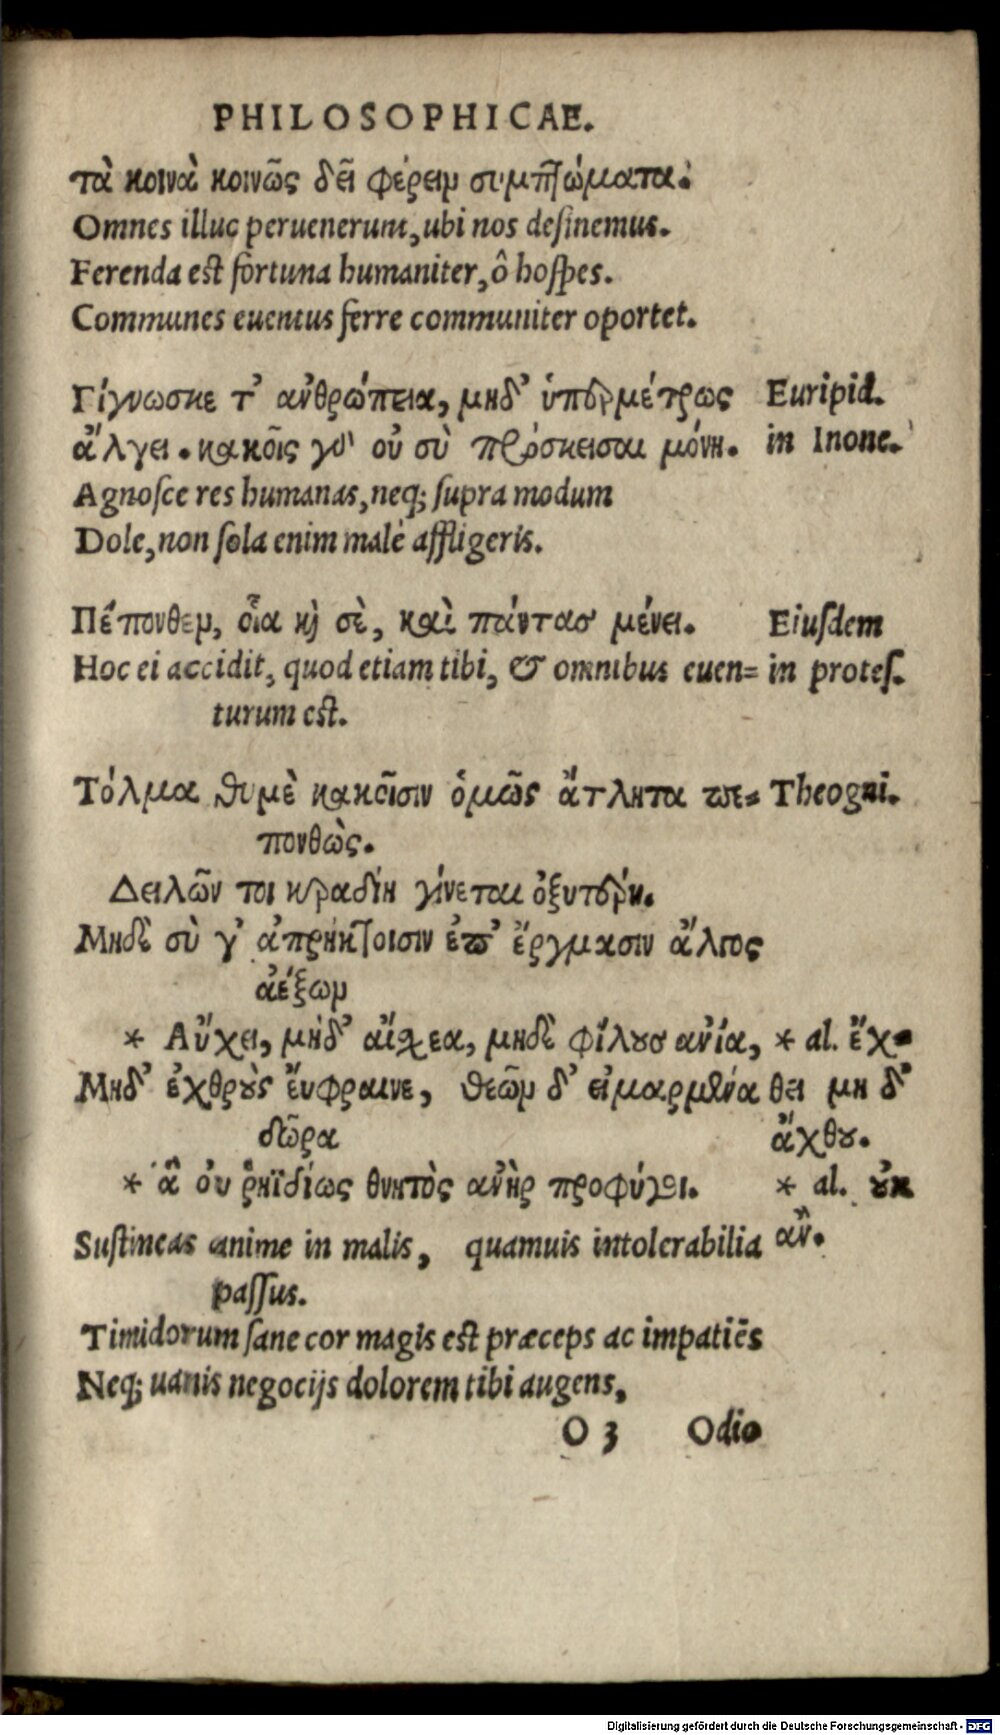 PHILOSOPHICAE.
τὰ κοινὰ κοινῶς δεῖ φέρειν συμπτώματα.
Omnes illuc peruenerunt, ubi nos desinemus.
Ferenda est fortuna humaniter, ô hospes.
Communes euentus ferre communiter oportet.
Γίγνωσκε τ' ἀνθρώπεια, μηδ' ὑπερμέτρως Euripid.
ἄλγει. κακοῖς γὰρ οὐ σὺ πρόσκεισαι μόνη. in Inone.
Agnosce res humanas, neq; supra modum
Dole, non sola enim malè affligeris.
Πέπονθεν, οἷα καὶ σὲ, καὶ πάντας μένει. Eiusdem
Hoc ei accidit, quod etiam tibi, & omnibus euen= in protes.
turum est.
Τόλμα θυμὲ κακοῖσιν ὁμῶς ἄτλητα πε= Theogni.
πονθὼς.
Δειλῶν τοι κραδίη γίνεται ὀξυτέρη.
Μηδὲ σὺ γ' ἀπρήκτοισιν ἐπ' ἔργμασιν ἄλγος
ἀέξων
* Αὔχει, μήδ' αἴσχεα, μηδὲ φίλους ἀνία, * al. ἔχ=
Μηδ' ἐχθροὺς εὔφραινε, θεῶν δ' εἱμαρμένα θει μη δ'
δῶρα ἄχθου.
* ἂ οὐ ῥηϊδίως θνητὸς ἀνὴρ προφύγοι. * al. οὐκ
Sustineas anime in malis, quamuis intolerabilia ἂν.
passus.
Timidorum sane cor magis est præceps ac impatiēs
Neq; uanis negocijs dolorem tibi augens,
O 3 Odio
Digitalisierung gefördert durch die Deutsche Forschungsgemeinschaft - DFG